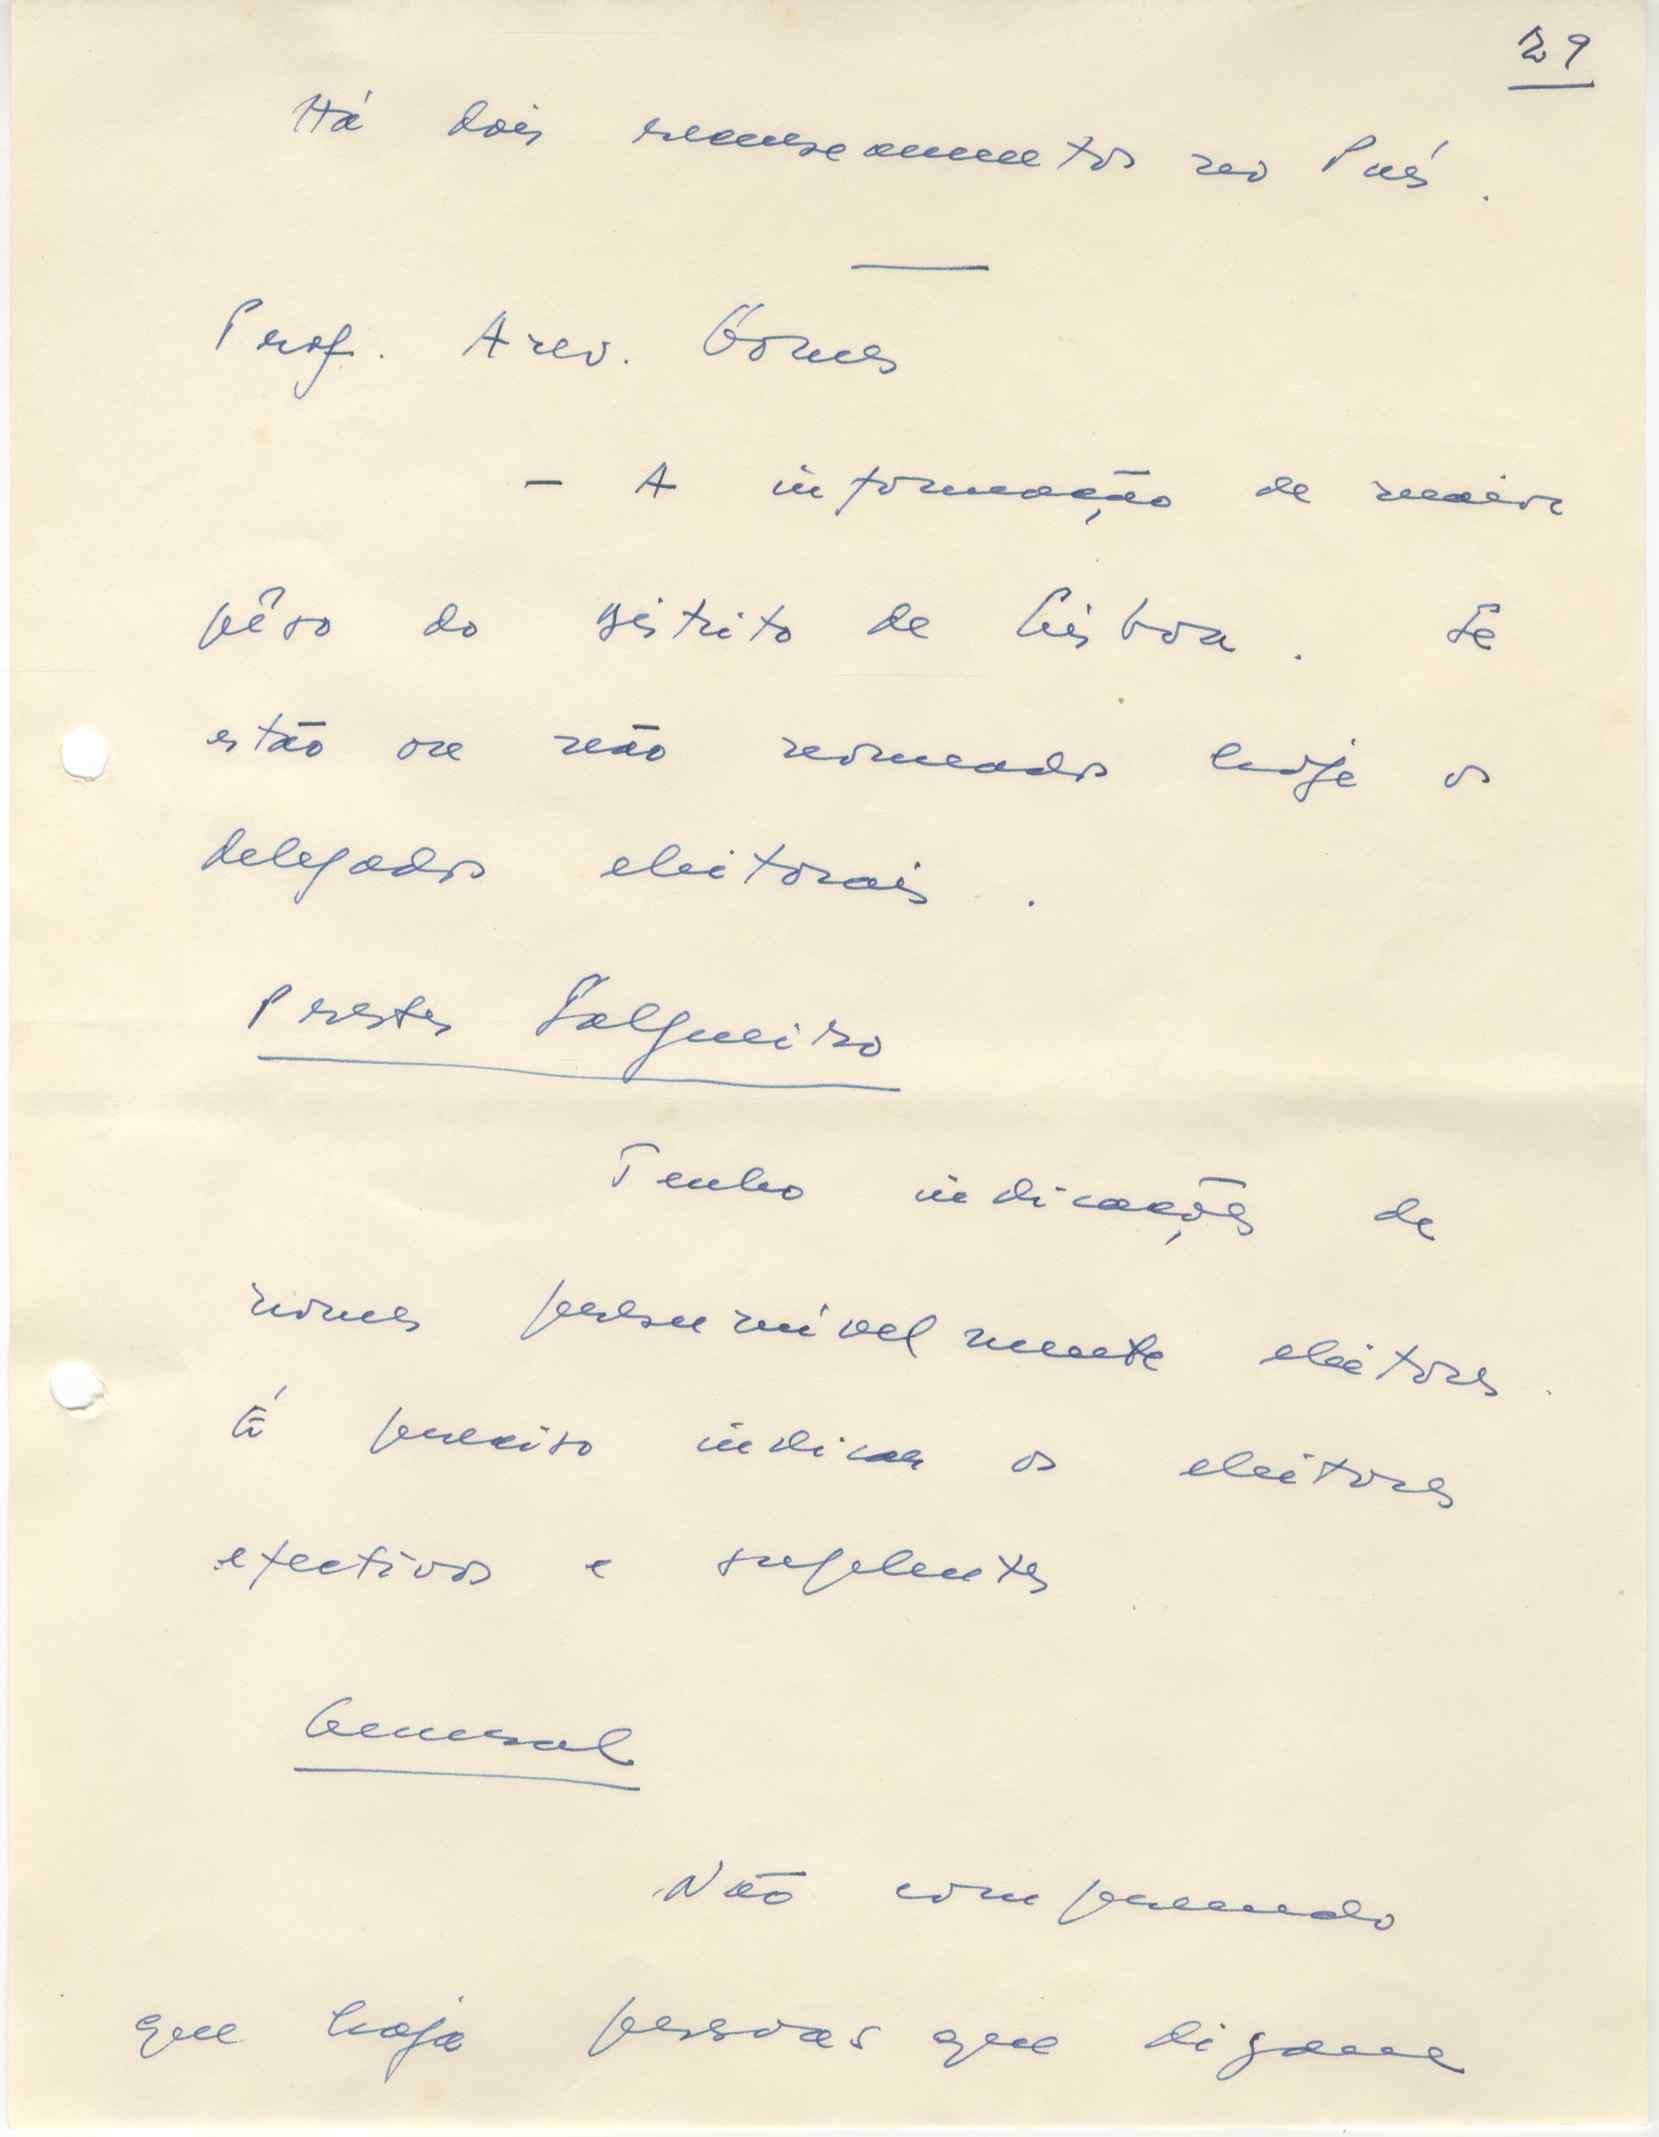 29
Há dois recenseamentos no País.
Prof. Azev. Gomes
— A informação de maior
pêso do distrito de Lisboa. Se
estão ou não nomeados hoje os
delegados eleitorais.
Prestes Salgueiro
Tenho indicações de
nomes presumivelmente eleitores.
É preciso indicar os eleitores
efectivos e suplentes
General
Não compreendo
que haja pessoas que digam